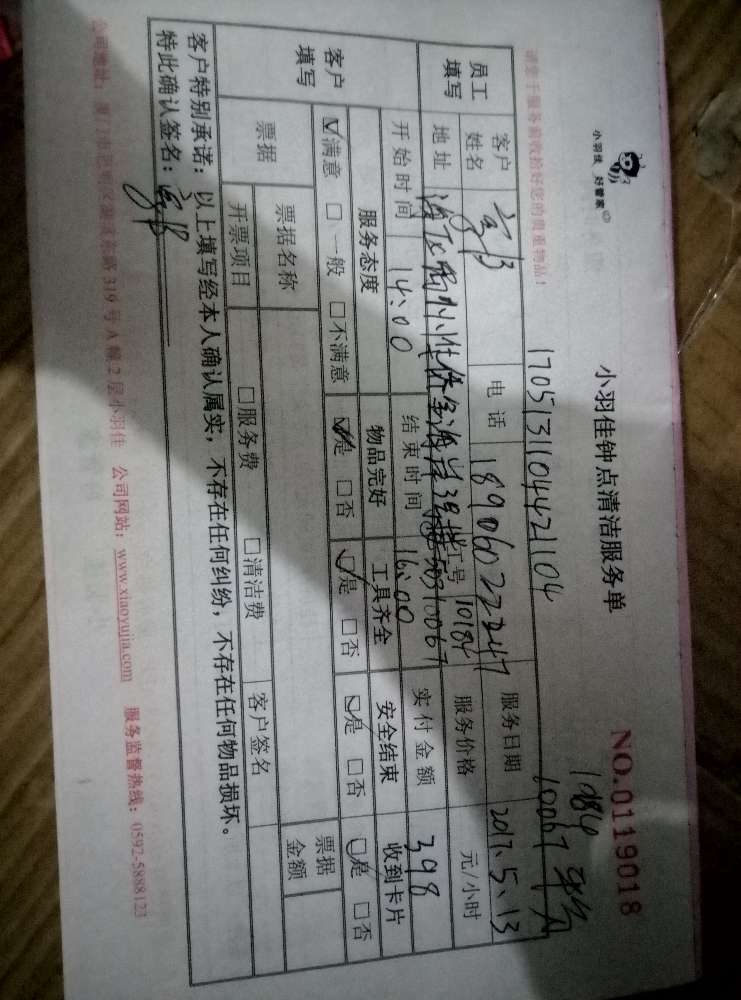 小羽佳 好管家
小羽佳钟点清洁服务单
NO.0119018
1084
10067
请您于服务前收拾好您的贵重物品!
1705131104421104
员工填写
客户姓名
电话 18906022247
服务日期 2017.5.13
地址
员工号 10184
服务价格 元/小时
开始时间 14:00
结束时间 16:00
实付金额 398
客户填写
服务态度 物品完好 工具齐全 安全结束 收到卡片
☑满意 □一般 □不满意 ☑是 □否 ☑是 □否 ☑是 □否 ☑是 □否
票据
票据名称
票据金额
开票项目 □服务费 □清洁费 客户签名
客户特别承诺:以上填写经本人确认属实,不存在任何纠纷,不存在任何物品损坏。
特此确认签名:
公司地址:厦门市思明区湖滨东路319号A幢2层小羽佳 公司网站:www.xiaoyujia.com 服务监督热线:0592-5888123